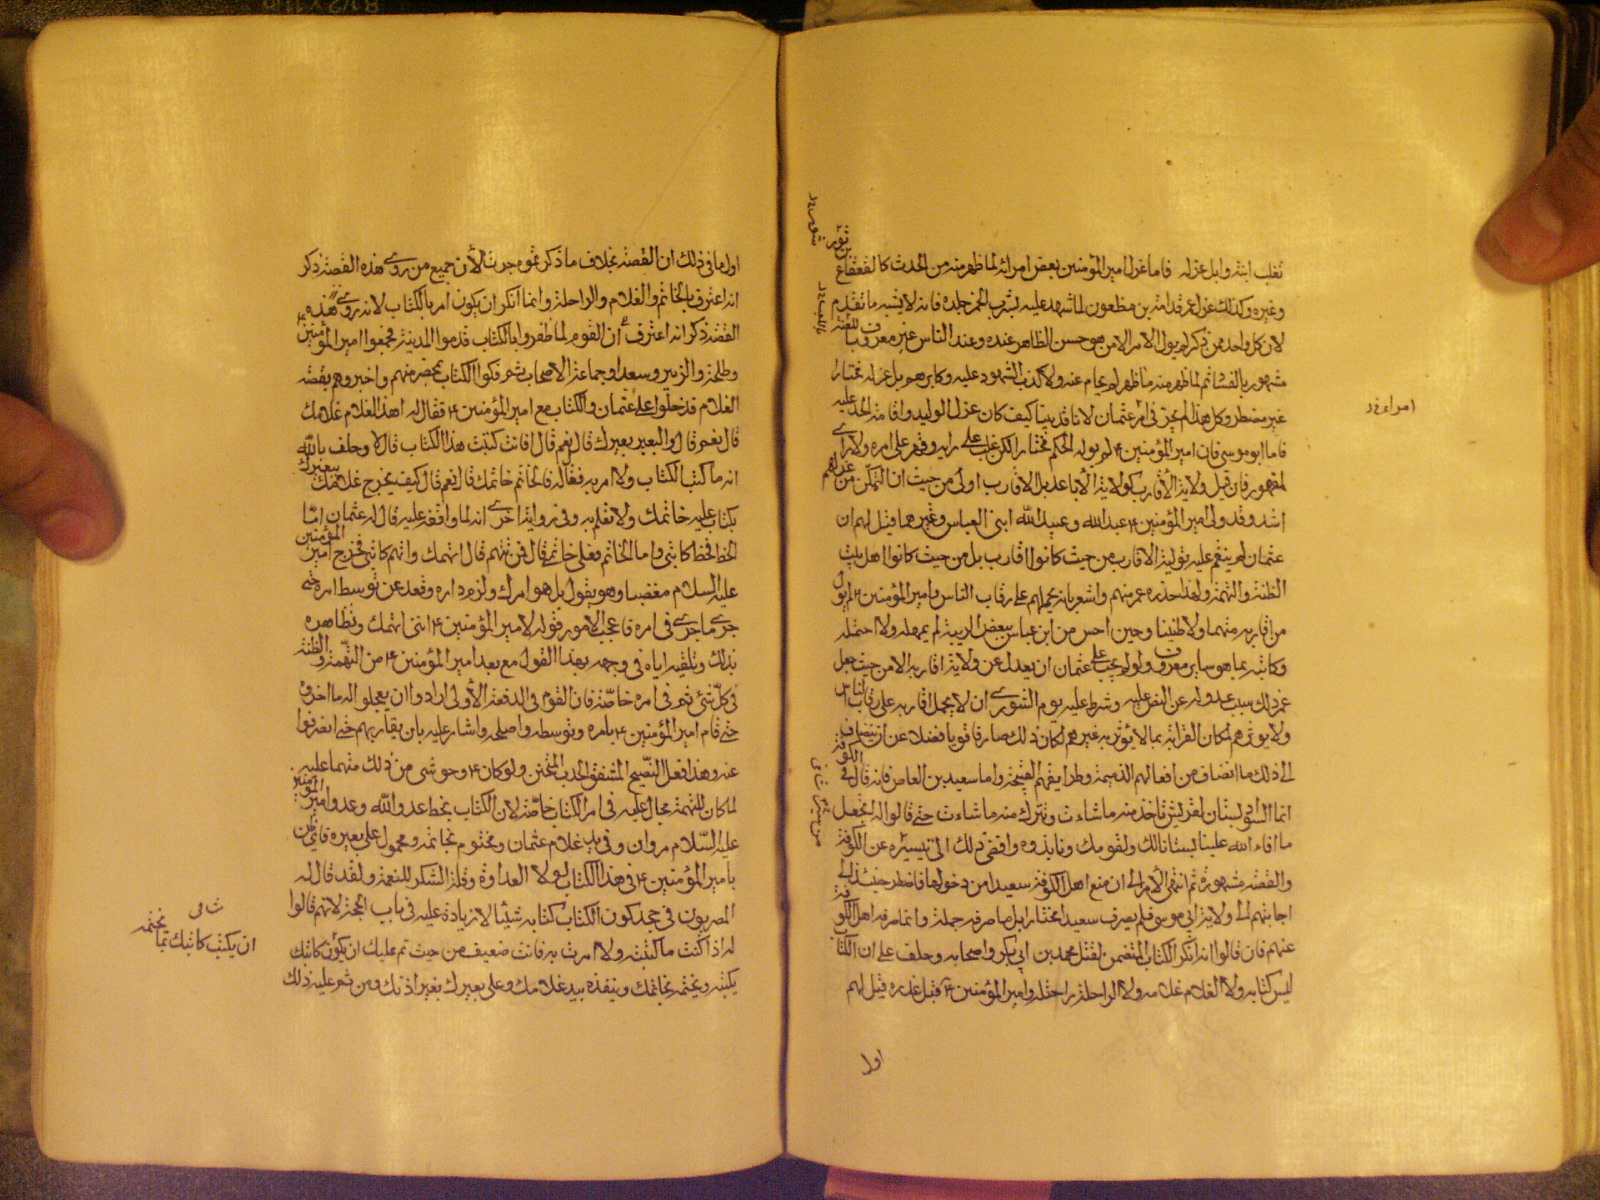 وغيره وكذلك عزل عمر قدامة بن مظعون لما شهد عليه بشرب الخمر وجلده فانه لا يشبه ما تقدم
لان كل واحد ممن ذكر لم يول الا من هو حسن الظاهر عنده وعند الناس غير معروف باللعنة
غير مضطر وكل هذا لم يجر في امر عثمان لانا قد بينا كيف كان عزل الوليد واقامة الحد عليه
فاما ابو موسى فان امير المؤمنين ٤ لم يوله الحكم مختارا لكن غلب على رايه وقهر على امره ولا راى
لمقهور فان قيل ولاية الأقارب كولاية الأباعد بل الاقارب اولى من حيث ان التمكن من عزلهم
اشد وقد ولى امير المؤمنين ٤ عبد الله وعبيد الله ابنى العباس وغيرهما قيل لهم ان
عثمان لم ينقم عليه تولية الاقارب من حيث كانوا اقارب بل من حيث كانوا اهل بيت
الظنة والتهمة ولهذا حذره عمر منهم واشعر بانه يحملهم على رقاب الناس وامير المؤمنين ٤ لم يول
من اقاربه متهما ولا ظنينا وحين احس من ابن عباس ببعض الريبة لم يمهله ولا احتمله
وكاتبه بما هو ساير معروف ولو لم يجب على عثمان ان يعدل عن ولاية اقاربه الا من حيث جعل
عمر ذلك سبب عدوله عن النص عليه وشرط عليه يوم الشورى ان لا يحمل اقاربه على رقاب الناس
ولا يؤثرهم لمكان القرابة بما لا يؤثر به غيرهم لكان ذلك صارفا قويا فضلا عن ان ينضاف
الى ذلك ما انضاف من افعالهم الذميمة وطرايقهم القبيحة واما سعيد بن العاص فانه قال في الكوفة
انما السواد بستان لقريش تاخذ منه ما شاءت وتترك منه ما شاءت حتى قالوا له اتجعل
ما افاء الله علينا بستانا لك ولقومك ونابذوه وافضى ذلك الى تسييره من سير عن الكوفة
والقصة مشهورة ثم انتهى الأمر الى ان منع اهل الكوفة سعيدا من دخولها فاضطر حينئذ الى
اجابتهم الى ولاية ابي موسى فلم يصرف سعيدا مختارا بل ما صرفه جملة وانما صرفه اهل الكوفة
عنهم فان قالوا انه انكر الكتاب المتضمن لقتل محمد بن ابي بكر واصحابه وحلف على ان الكتاب
ليس كتابه ولا الغلام غلامه ولا الراحلة راحلته وامير المؤمنين ٤ قبل عذره قيل لهم
اول
اول ما في ذلك ان القصة بخلاف ما ذكرتموه جرت لأن جميع من روى هذه القصة ذكر
انه اعترف بالخاتم والغلام والراحلة وانما انكر ان يكون امر بالكتاب لانه روى هذه
القصة ذكر انه اعترف ان القوم لما ظفروا بالكتاب قدموا المدينة فجمعوا امير المؤمنين ٤
وطلحة والزبير وسعدا وجماعة الاصحاب ثم فكوا الكتاب بمحضر منهم واخبروهم بقصة
الغلام فدخلوا على عثمان والكتاب مع امير المؤمنين ٤ فقال له اهذا الغلام غلامك
قال نعم قال والبعير بعيرك قال نعم قال افانت كتبت هذا الكتاب قال لا وحلف بالله
انه ما كتب الكتاب ولا امر به فقال له فالخاتم خاتمك قال نعم قال كيف يخرج غلامك ببعيرك
بكتاب عليه خاتمك ولا تعلم به وفي رواية اخرى انه لما واقفه عليه قال له عثمان اما
الخط فخط كاتبي واما الخاتم فعلى خاتمي قال فمن تتهم قال اتهمك واتهم كاتبي فخرج امير المؤمنين
عليه السلام مغضبا وهو يقول بل هو امرك ولزم داره وقعد عن توسط امره حتى
جرى ما جرى في امره فاعجب الامور قوله لامير المؤمنين ٤ اني اتهمك وتظاهره
بذلك وتلقيه اياه في وجهه بهذا القول مع بعد امير المؤمنين ٤ من التهمة والظنة
في كل شئ ثم في امره خاصة فان القوم في الدفعة الأولى ارادوا ان يعجلوا له ما اخروه
حتى قام امير المؤمنين ٤ بامره وتوسطه واصلحه واشار عليه بان يقاربهم حتى انصرفوا
عنه وهذا فعل النصيح المشفق الحدب المتحنن ولو كان ٤ وحوشى من ذلك متهما عليه
لما كان للتهمة مجال عليه في امر الكتاب خاصة لان الكتاب بخط عدو الله وعدو امير المؤمنين
عليه السلام مروان وفي يد غلام عثمان ومختوم بخاتمه ومحمول على بعيره فاى ظن
بامير المؤمنين ٤ في هذا الكتاب لولا العداوة وقلة الشكر للنعمة ولقد قال له
المصريون في جحد كون الكتاب كتابه شيئا لا زيادة عليه في باب الحجة لانهم قالوا
له اذا كنت ما كتبته ولا امرت به فانت ضعيف من حيث تم عليك ان يكون كاتبك
يكتبه ويختمه بخاتمك وينفذه بيد غلامك وعلى بعيرك بغير اذنك ومن تم عليه ذلك
ان يكتب كاتبك بما تختمه